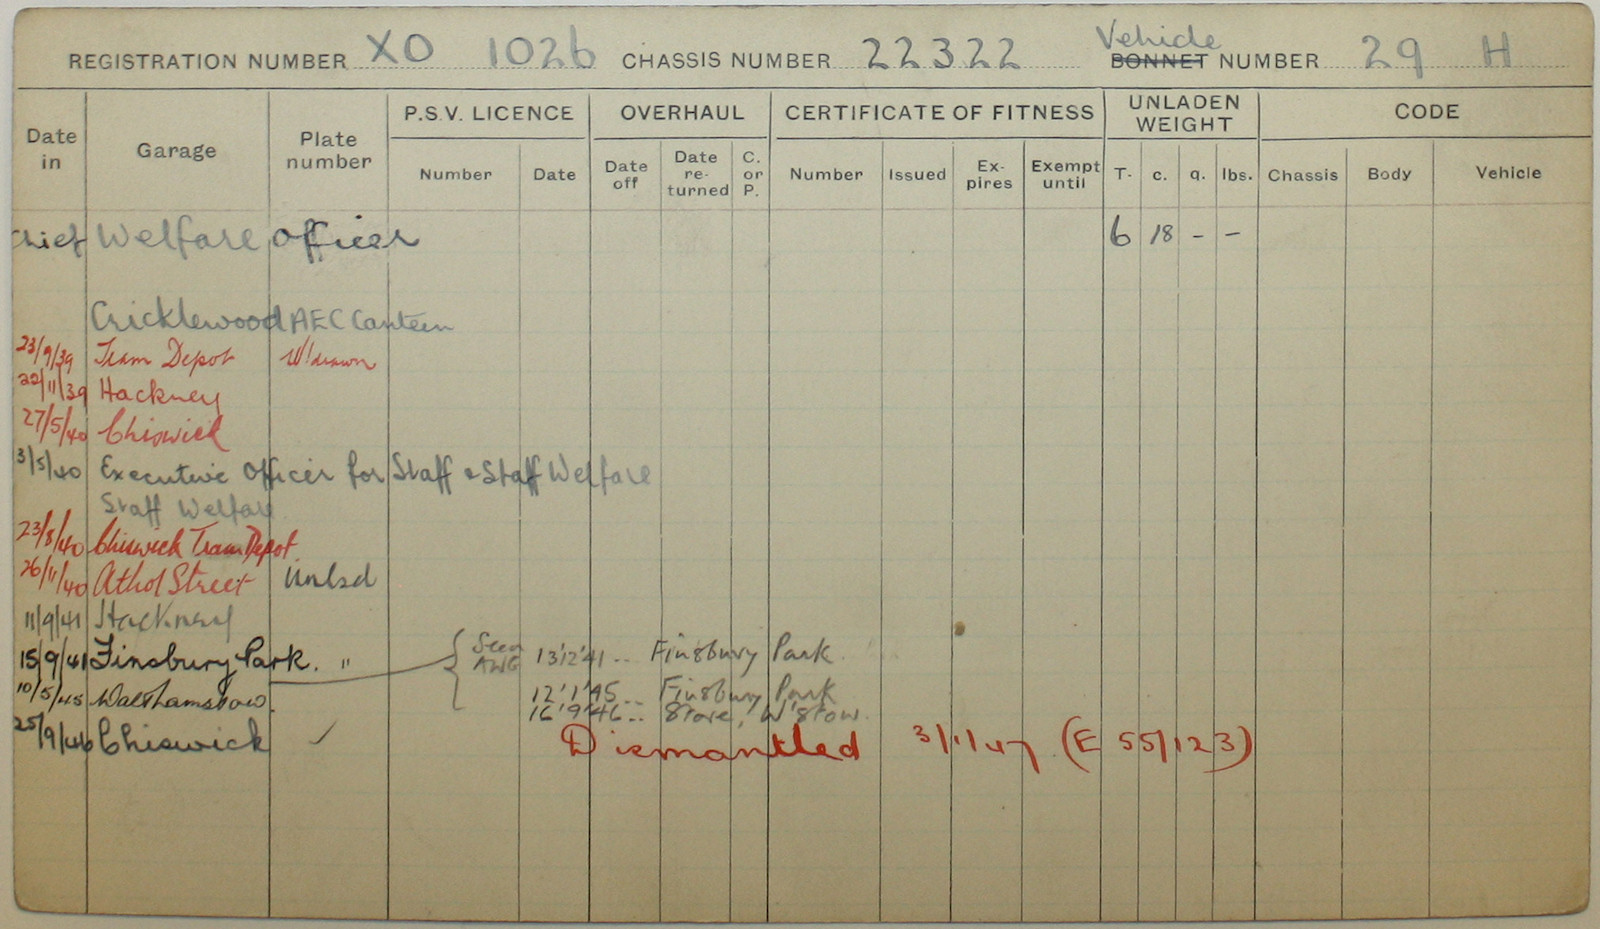 REGISTRATION NUMBER XO 1026 CHASSIS NUMBER 22322 Vehicle BONNET NUMBER 29 H
Date in Garage Plate number P.S.V. LICENCE OVERHAUL CERTIFICATE OF FITNESS UNLADEN WEIGHT CODE
Number Date Date off Date re-turned C. or P. Number Issued Ex-pires Exempt until T. c. q. lbs. Chassis Body Vehicle
Chief Welfare Officer 6 18 - -
Cricklewood AEC Canteen
23/9/39 Tram Depot W'drawn
22/11/39 Hackney
27/5/40 Chiswick
3/5/40 Executive Officer for Staff & Staff Welfare
Staff Welfare
23/8/40 Chiswick Tram Depot
26/11/40 Athol Street Unlsd
11/9/41 Hackney
15/9/41 Finsbury Park. " Seen AWG 13'12'41 -- Finsbury Park
10/5/45 Walthamstow. 12'1'45 -- Finsbury Park
16'9'46 -- Store, W'stow.
25/9/46 Chiswick ✓ Dismantled 3/1/47 (E 55/123)